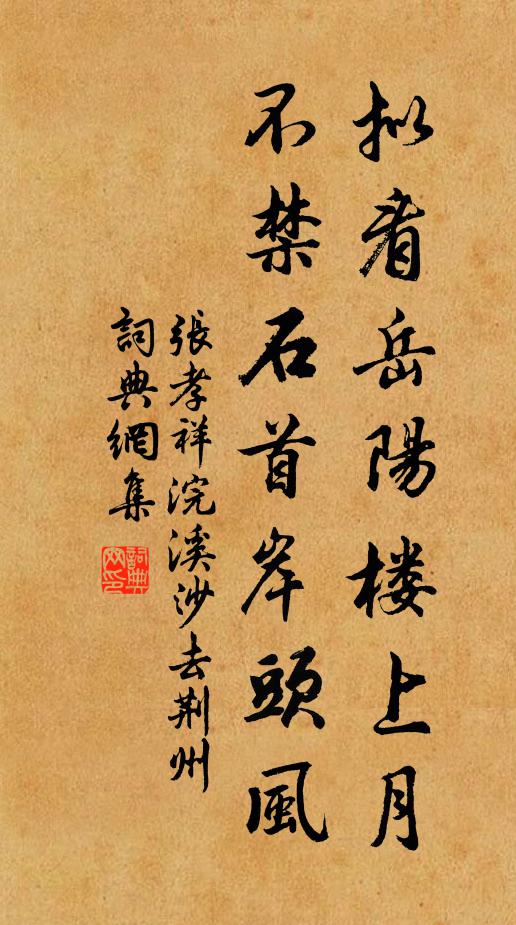 拟看岳陽楼上月
不禁石首岸頭風
張孝祥浣溪沙去荆州
詞典網集
詞典網印